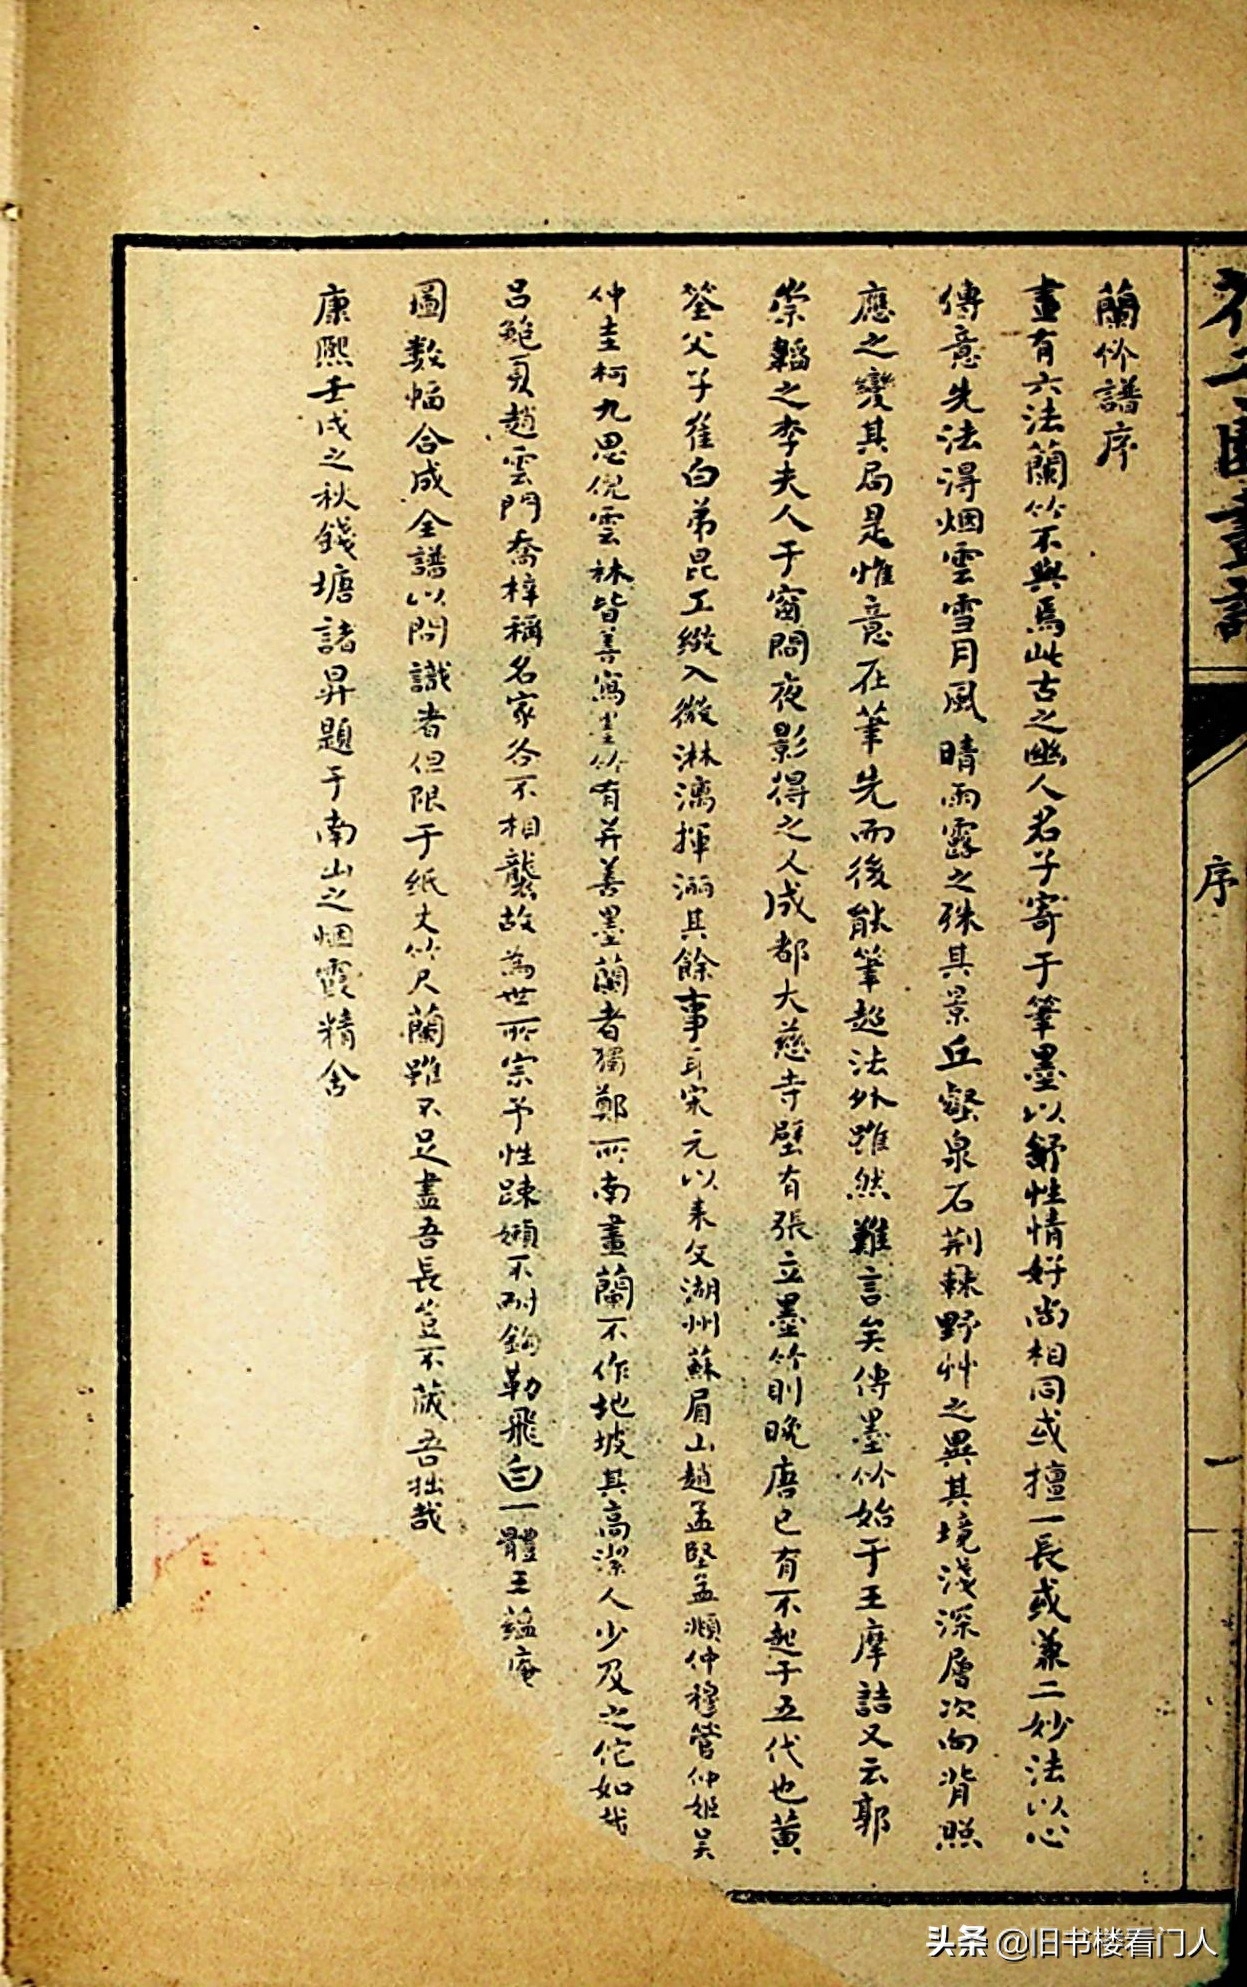 蘭竹譜序
畫有六法蘭竹不與焉此古之幽人君子寄于筆墨以舒性情好尚相同或擅一長或兼二妙法以心
傳意先法得烟雲雪月風晴雨露之殊其景丘壑泉石荆棘野艸之異其境淺深層次向背照
應之變其局是惟意在筆先而後能筆超法外雖然難言矣傳墨竹始于王摩詰又云郭
崇韜之李夫人于窗間夜影得之人成都大慈寺壁有張立墨竹則晚唐已有不起于五代也黄
筌父子崔白弟昆工緻入微淋漓揮洒其餘事耳宋元以来文湖州蘇眉山趙孟堅孟頫仲穆管仲姬吴
仲圭柯九思倪雲林皆善寫墨竹有并善墨蘭者獨鄭所南畫蘭不作地坡其高潔人少及之佗如
吕鮑夏趙雲門喬梓稱名家各不相襲故為世所宗予性踈嬾不耐鈎勒飛白一體王蘊庵
圖數幅合成全譜以問識者但限于紙丈竹尺蘭雖不足盡吾長豈不蔵吾拙哉
康熙壬戌之秋錢塘諸昇題于南山之烟霞精舍
園畫
序
一
头条 @旧书楼看门人